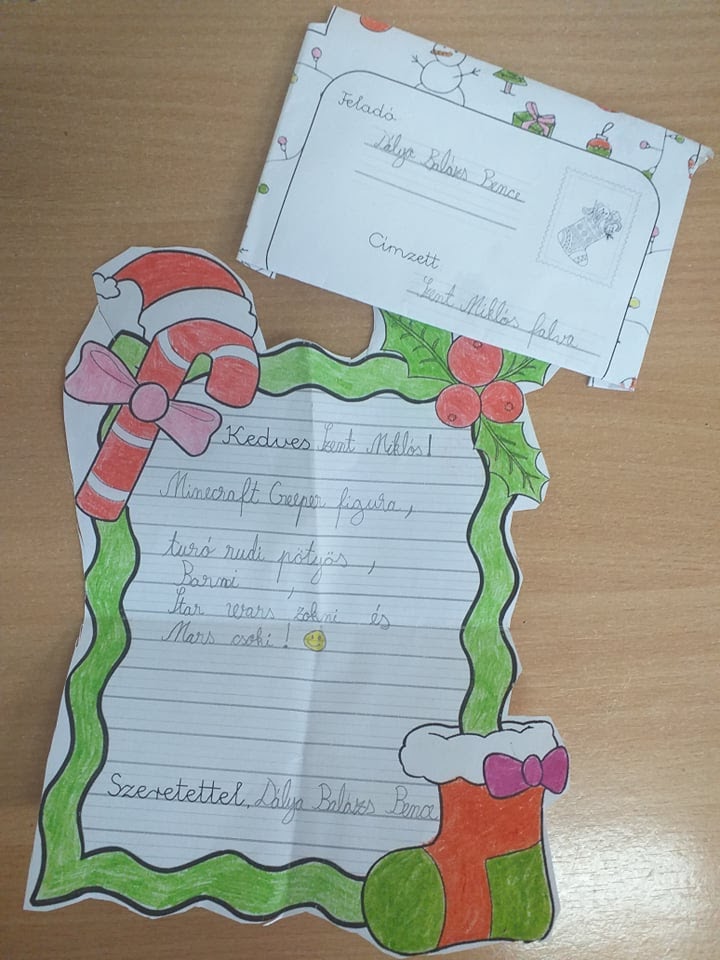 Feladó
Dálya Balázs Bence
Címzett
Szent Miklós falva
Kedves Szent Miklós!
Minecraft Creeper figura,
turó rudi pötyös,
Barni,
Star wars zokni és
Mars csoki!
Szeretettel, Dálya Balázs Bence